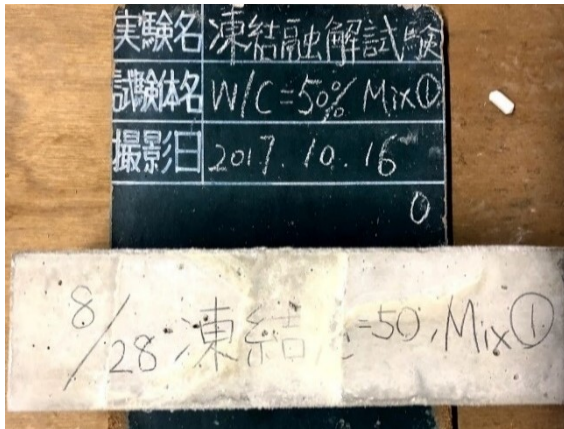 実験名 凍結融解試験
試験体名 W/C=50% Mix①
撮影日 2017.10.16
0
8/28 凍結 =50, Mix①